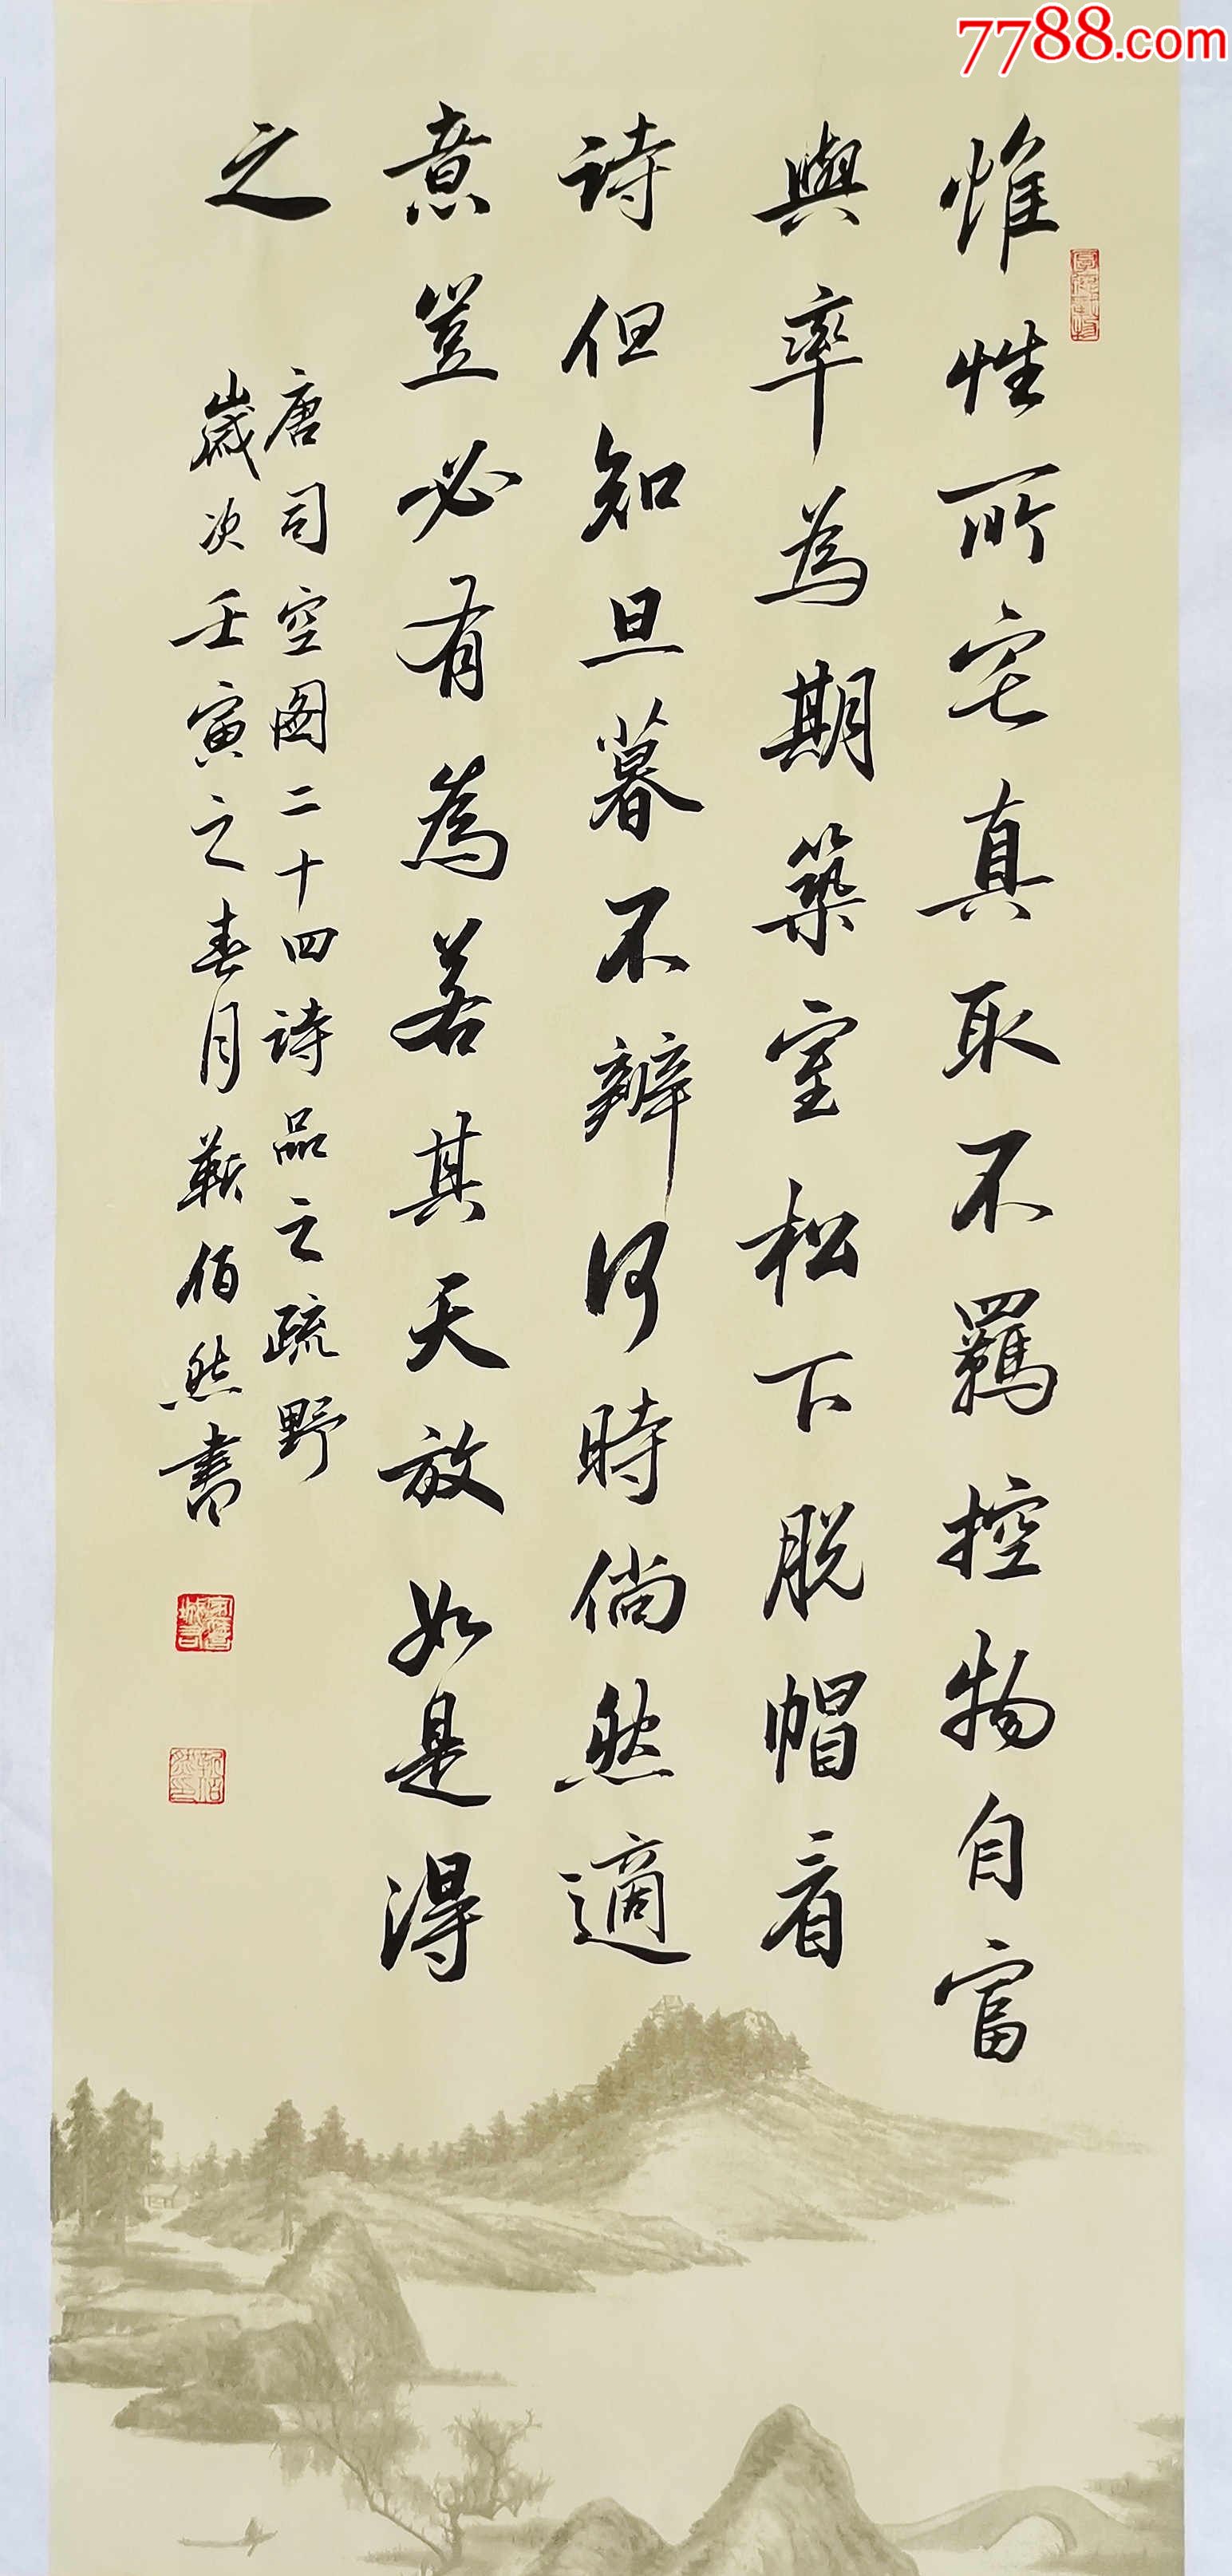 7788.com
惟性所宅真取不羁控物自富
與率為期築室松下脱帽看
詩但知旦暮不辨何時倘然適
意豈必有為若其天放如是得
之
唐司空图二十四詩品之疏野
歲次壬寅之春月靳佰然書